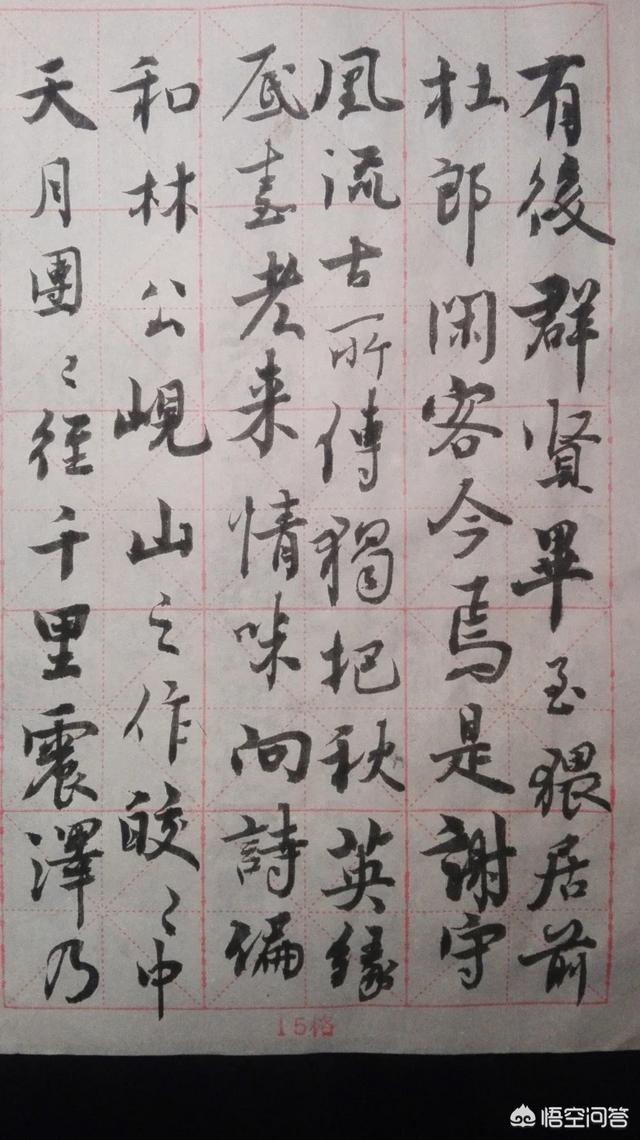 有後群賢畢至猥居前
杜郎閑客今焉是謝守
風流古所傳獨把秋英緣
底事老来情味向詩偏
和林公峴山之作皎〻中
天月團〻徑千里震澤乃
15格
悟空问答